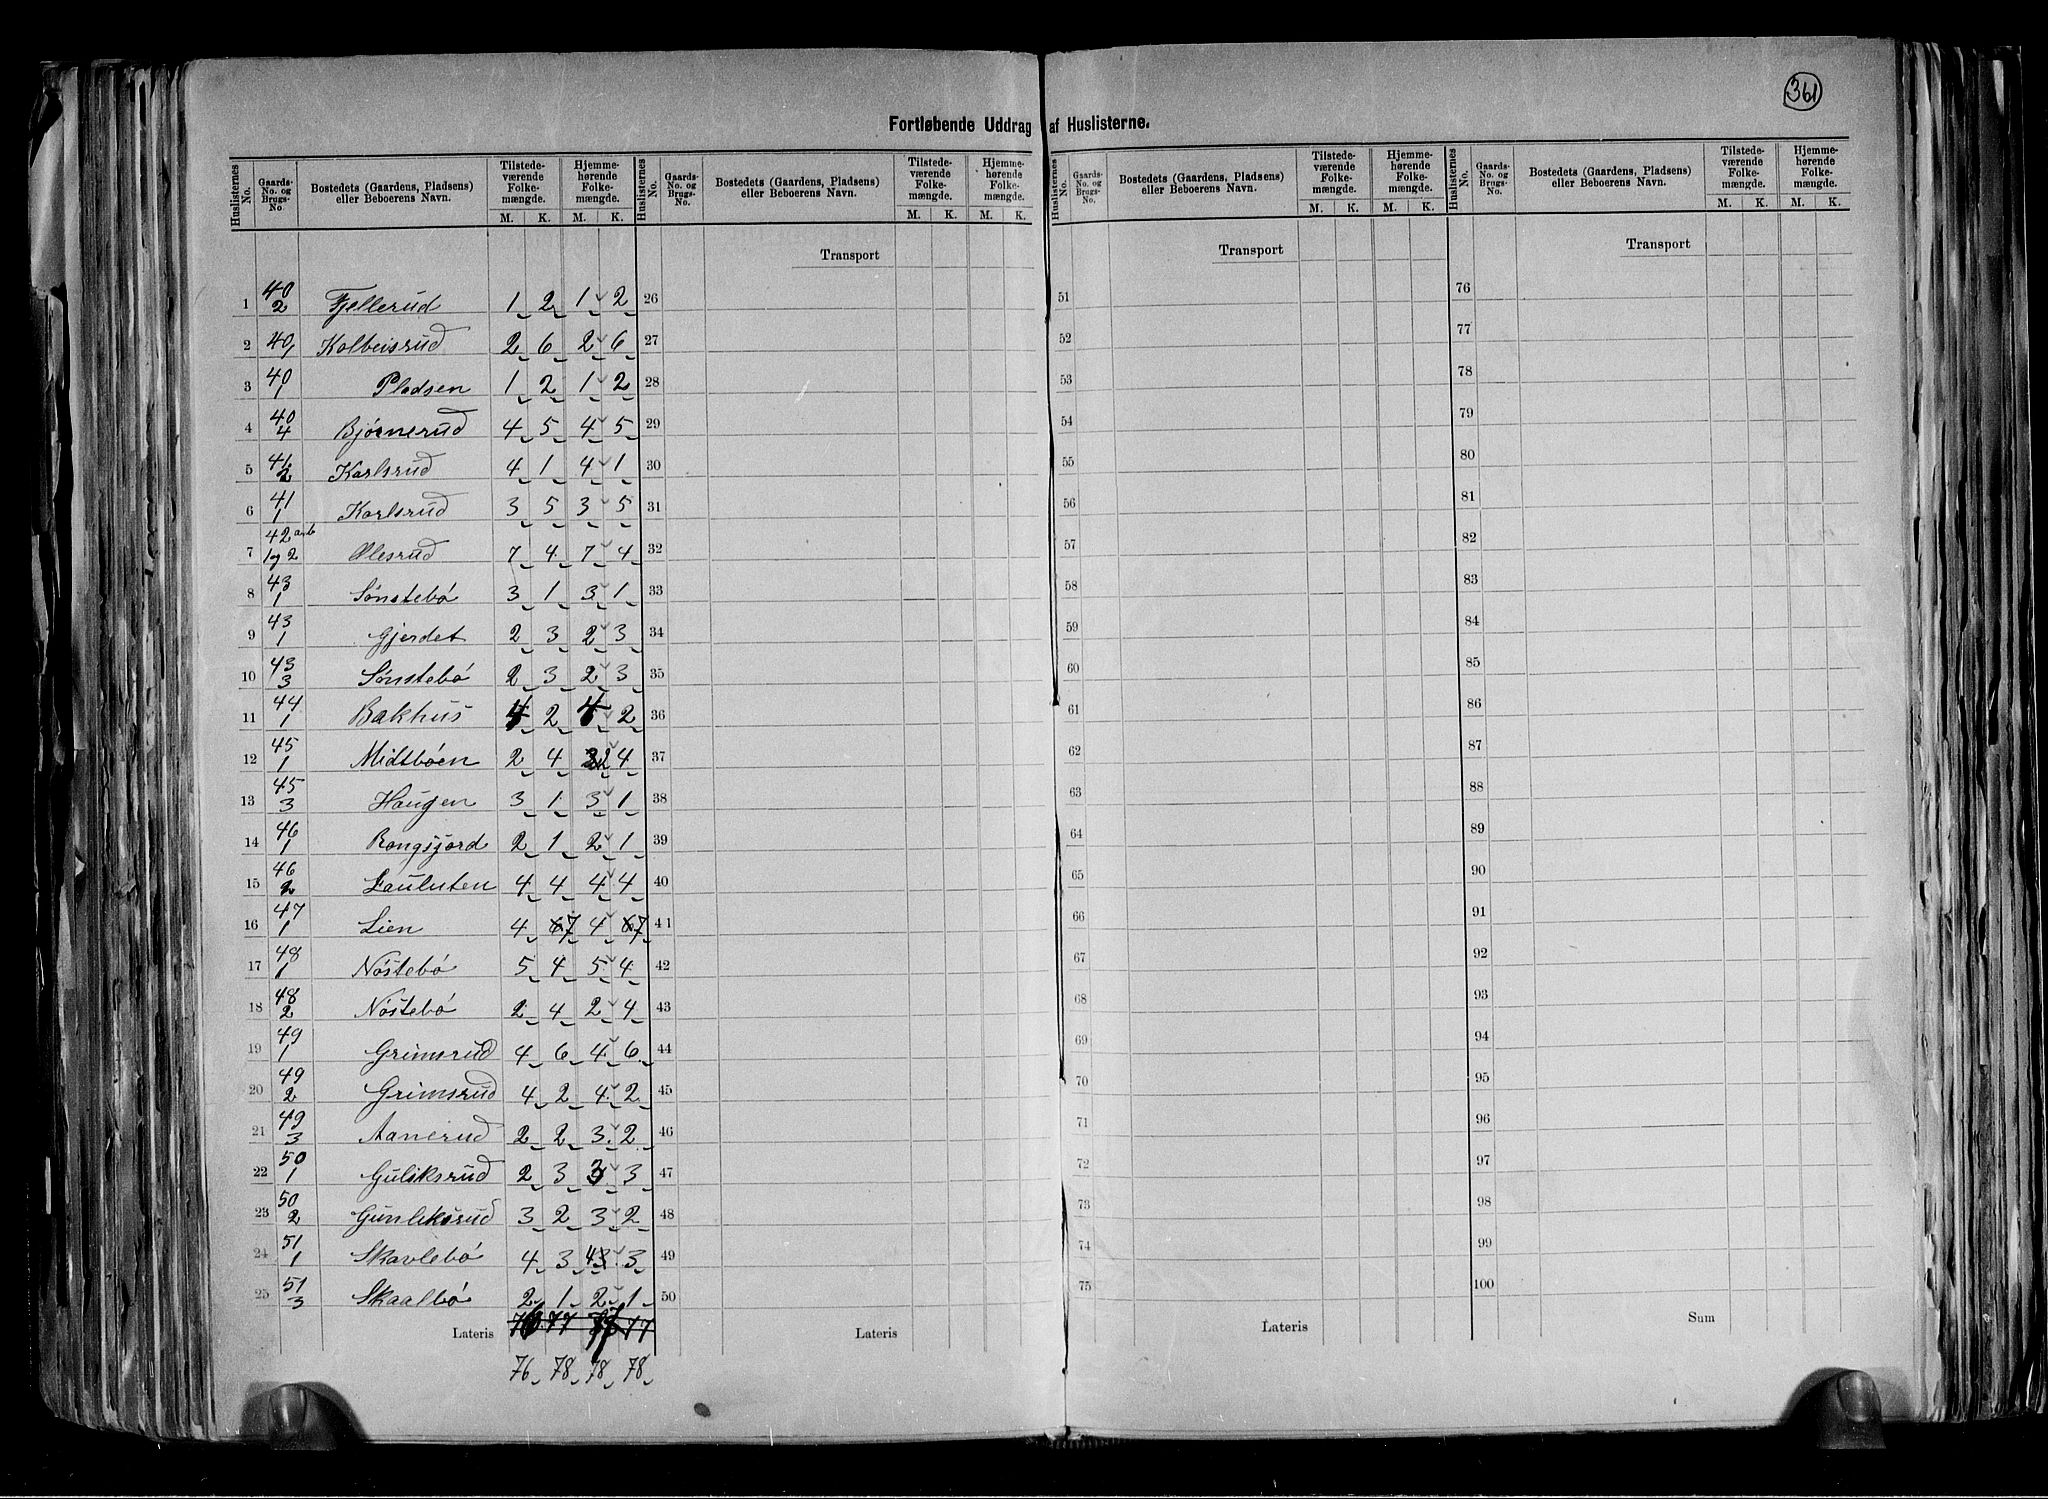 361
Fortløbende Uddrag af Huslisterne.
Huslisternes No. Gaards-No. og Brugs-No. Bostedets (Gaardens, Pladsens) eller Beboerens Navn. Tilstedeværende Folkemængde. M. K. Hjemmehørende Folkemængde. M. K.
Huslisternes No. Gaards-No. og Brugs-No. Bostedets (Gaardens, Pladsens) eller Beboerens Navn. Tilstedeværende Folkemængde. M. K. Hjemmehørende Folkemængde. M. K.
Huslisternes No. Gaards-No. og Brugs-No. Bostedets (Gaardens, Pladsens) eller Beboerens Navn. Tilstedeværende Folkemængde. M. K. Hjemmehørende Folkemængde. M. K.
Huslisternes No. Gaards-No. og Brugs-No. Bostedets (Gaardens, Pladsens) eller Beboerens Navn. Tilstedeværende Folkemængde. M. K. Hjemmehørende Folkemængde. M. K.
Transport Transport Transport
1 40/2 Fjellerud 1 2 1 2 26 51 76
2 40/1 Kolbeisrud 2 6 2 6 27 52 77
3 40/1 Pladsen 1 2 1 2 28 53 78
4 40/4 Bjørnerud 4 5 4 5 29 54 79
5 41/2 Karlsrud 4 1 4 1 30 55 80
6 41/1 Karlsrud 3 5 3 5 31 56 81
7 42 1 og 2 Olesrud 7 4 7 4 32 57 82
8 43/1 Sønstebö 3 1 3 1 33 58 83
9 43/1 Gjerdet 2 3 2 3 34 59 84
10 43/3 Sønstebö 2 3 2 3 35 60 85
11 44/1 Bakhus 4 2 4 2 36 61 86
12 45/1 Midtbøen 2 4 2 4 37 62 87
13 45/3 Haugen 3 1 3 1 38 63 88
14 46/1 Rongsjord 2 1 2 1 39 64 89
15 46/2 Lauluten 4 4 4 4 40 65 90
16 47/1 Lien 4 7 4 7 41 66 91
17 48/1 Nöstebö 5 4 5 4 42 67 92
18 48/2 Nöstebö 2 4 2 4 43 68 93
19 49/1 Grimsrud 4 6 4 6 44 69 94
20 49/2 Grimsrud 4 2 4 2 45 70 95
21 49/3 Aanerud 2 2 3 2 46 71 96
22 50/1 Guliksrud 2 3 3 3 47 72 97
23 50/2 Gunleksrud 3 2 3 2 48 73 98
24 51/1 Skavlebö 4 3 4 3 49 74 99
25 51/3 Skaalbö 2 1 2 1 50 75 100
Lateris 77 77 Lateris Lateris Sum
76 78 78 78